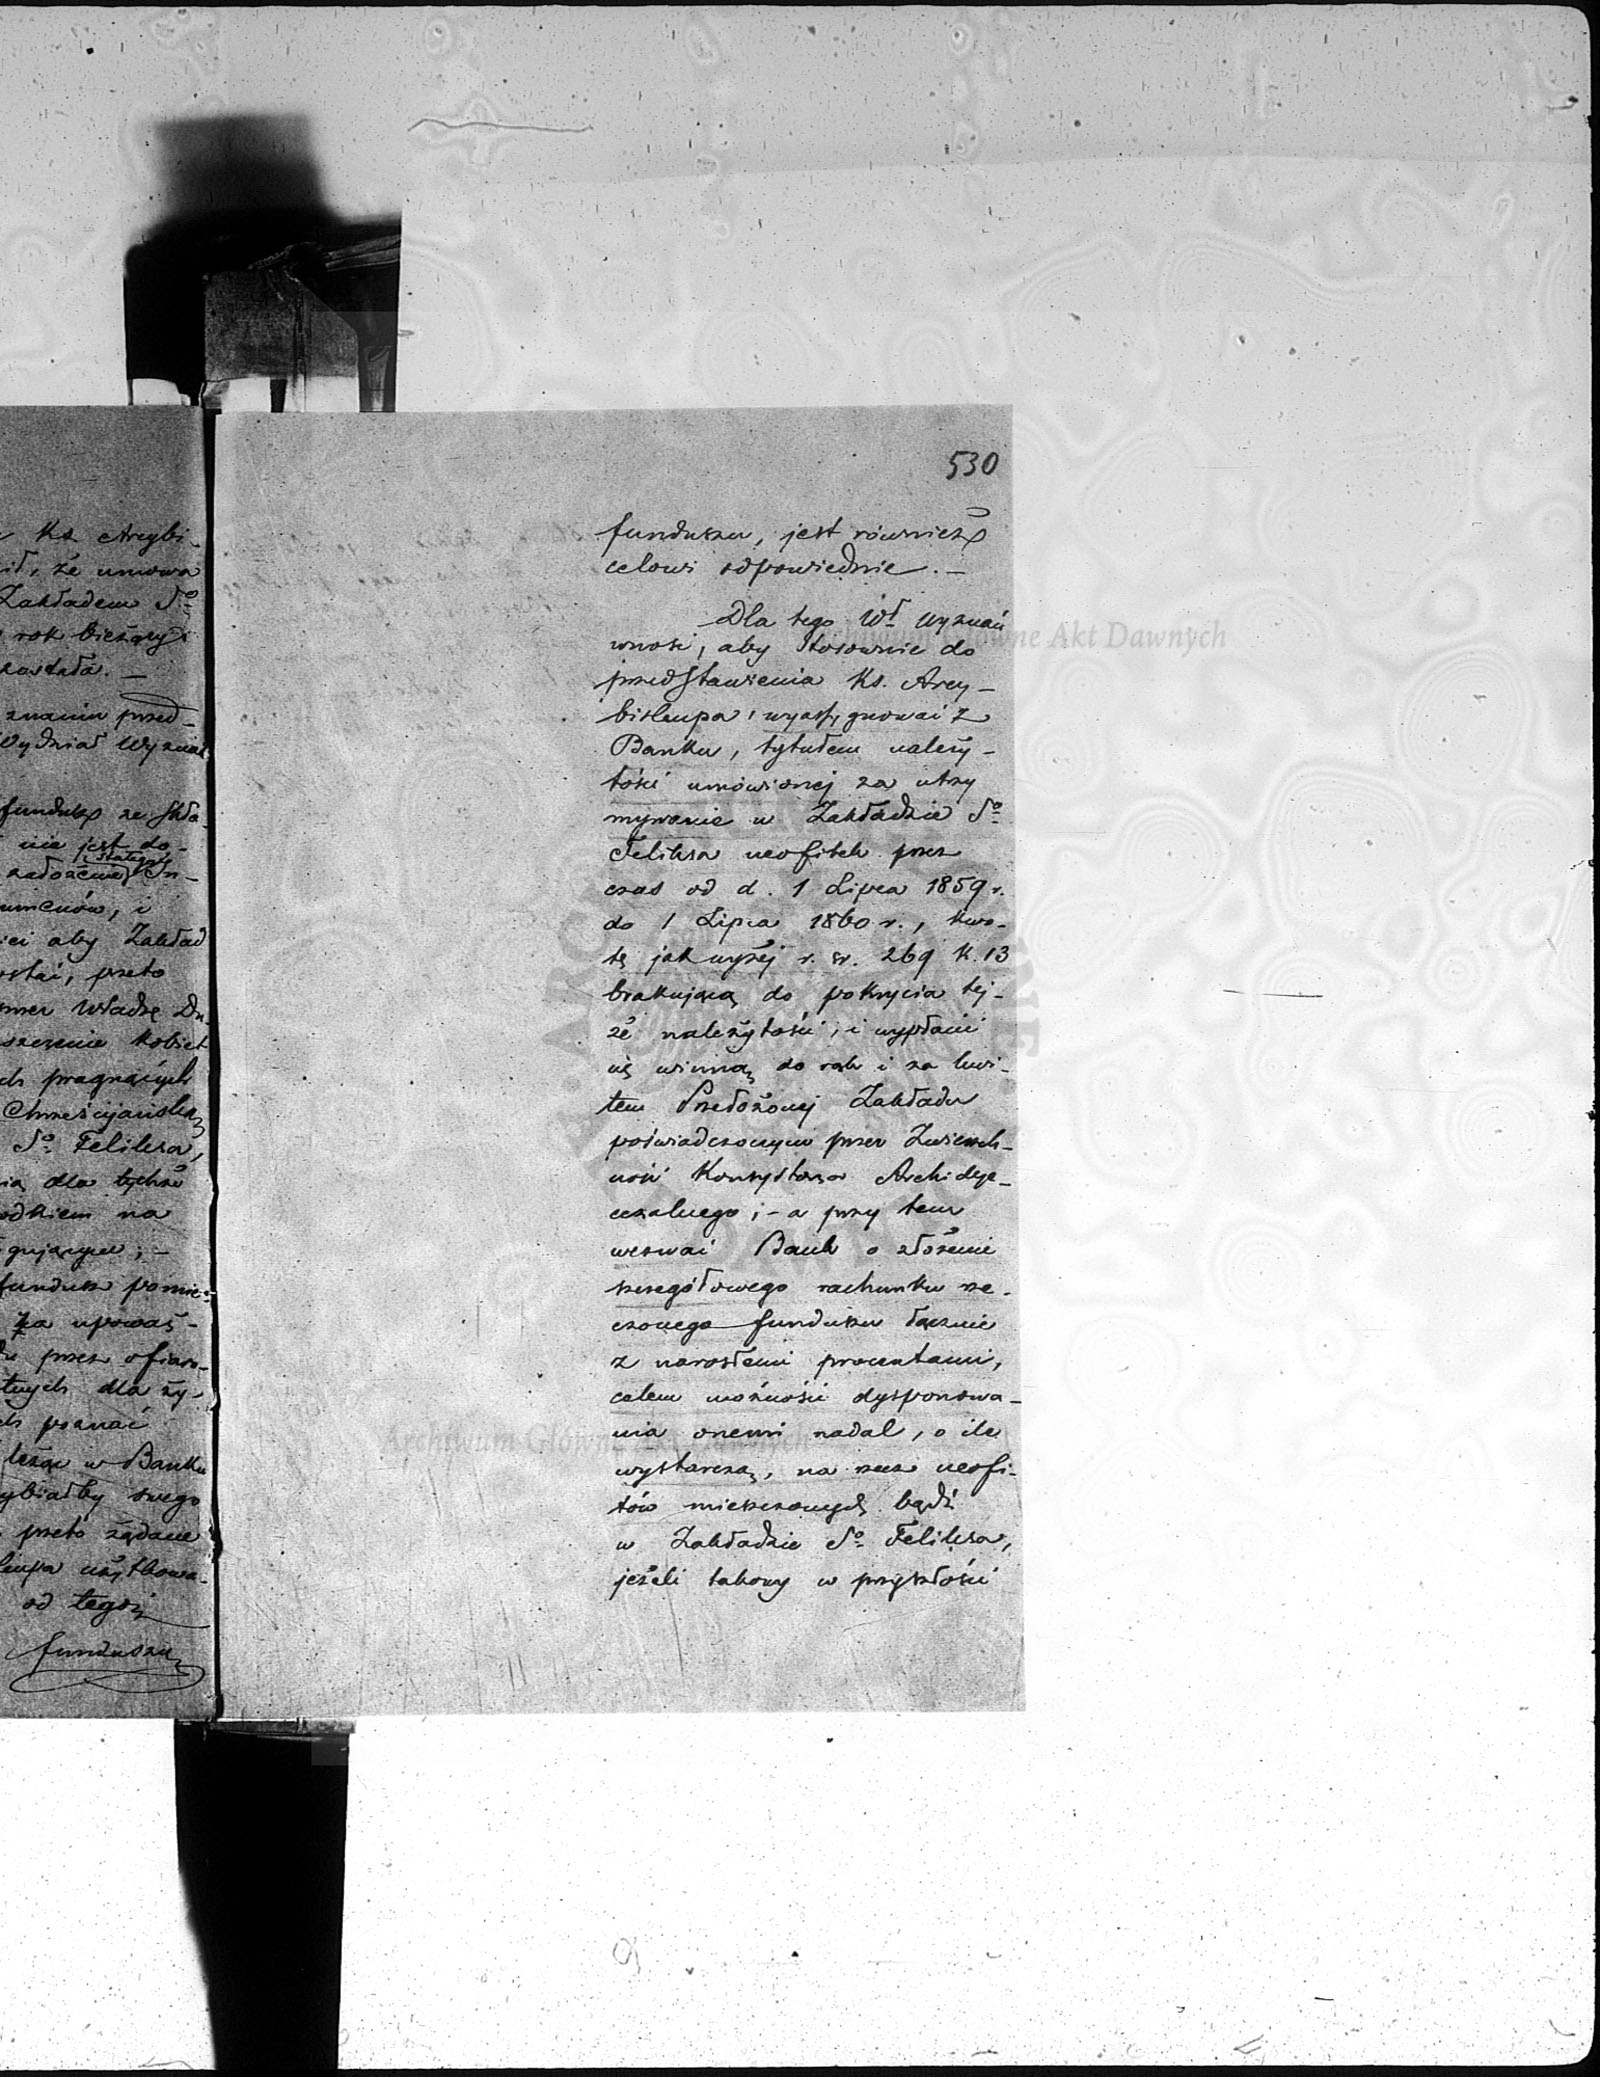 Ks Arcybi-
ił, że umowa
Zakładem Sº
rok bieżący
została. –
znaniu przed-
Wydział Wyznań
fundusz ze skła-
nie jest do-
stałego
założenia In-
i
aby Zakład
ostać, przeto
przez Władzę Du-
szczenie kobiet
ch pragnących
Chrześcijańską
Sº Felixa,
nia dla tychże
odkiem na
fundusz pomie-
za upoważ-
przez ofiaro-
tnych dla ży-
ch poznać
leżąc w Banku
ybiałby swego
przeto żądanie
kupa użytkowa-
od tegoż
funduszu
530
funduszu, jest również
celowi odpowiednie. –
Dla tego Wł Wyznań
wnosi, aby stosownie do
przedstawienia Ks. Arcy-
biskupa, wyassygnować z
Banku, tytułem należy-
tości umówionej za utrzy
mywanie w Zakładzie Sº
Felixa neofitek przez
czas od d. 1 Lipca 1859 r.
do 1 Lipca 1860 r., kwo-
tę jak wyżej r. sr. 269 k. 13
brakującą do pokrycia tej-
że należytości, i wypłacić
się winną do rąk i za kwi-
tem Przełożonej Zakładu
poświadczonym przez Zwierzch-
ność Konsystorza Archidye-
cezalnego; – a przy tem
wezwać Bank o złożenie
szczegółowego rachunku rze-
czonego funduszu łącznie
z narosłemi procentami,
celem możności dysponowa-
nia onemi nadal, o ile
wystarczą, na rzecz neofi-
tów mieszczonych bądź
w Zakładzie Sº Felixa,
jeżeli takowy w przyszłości
Archiwum Główne Akt Dawnych
Archiwum Główne Akt Dawnych